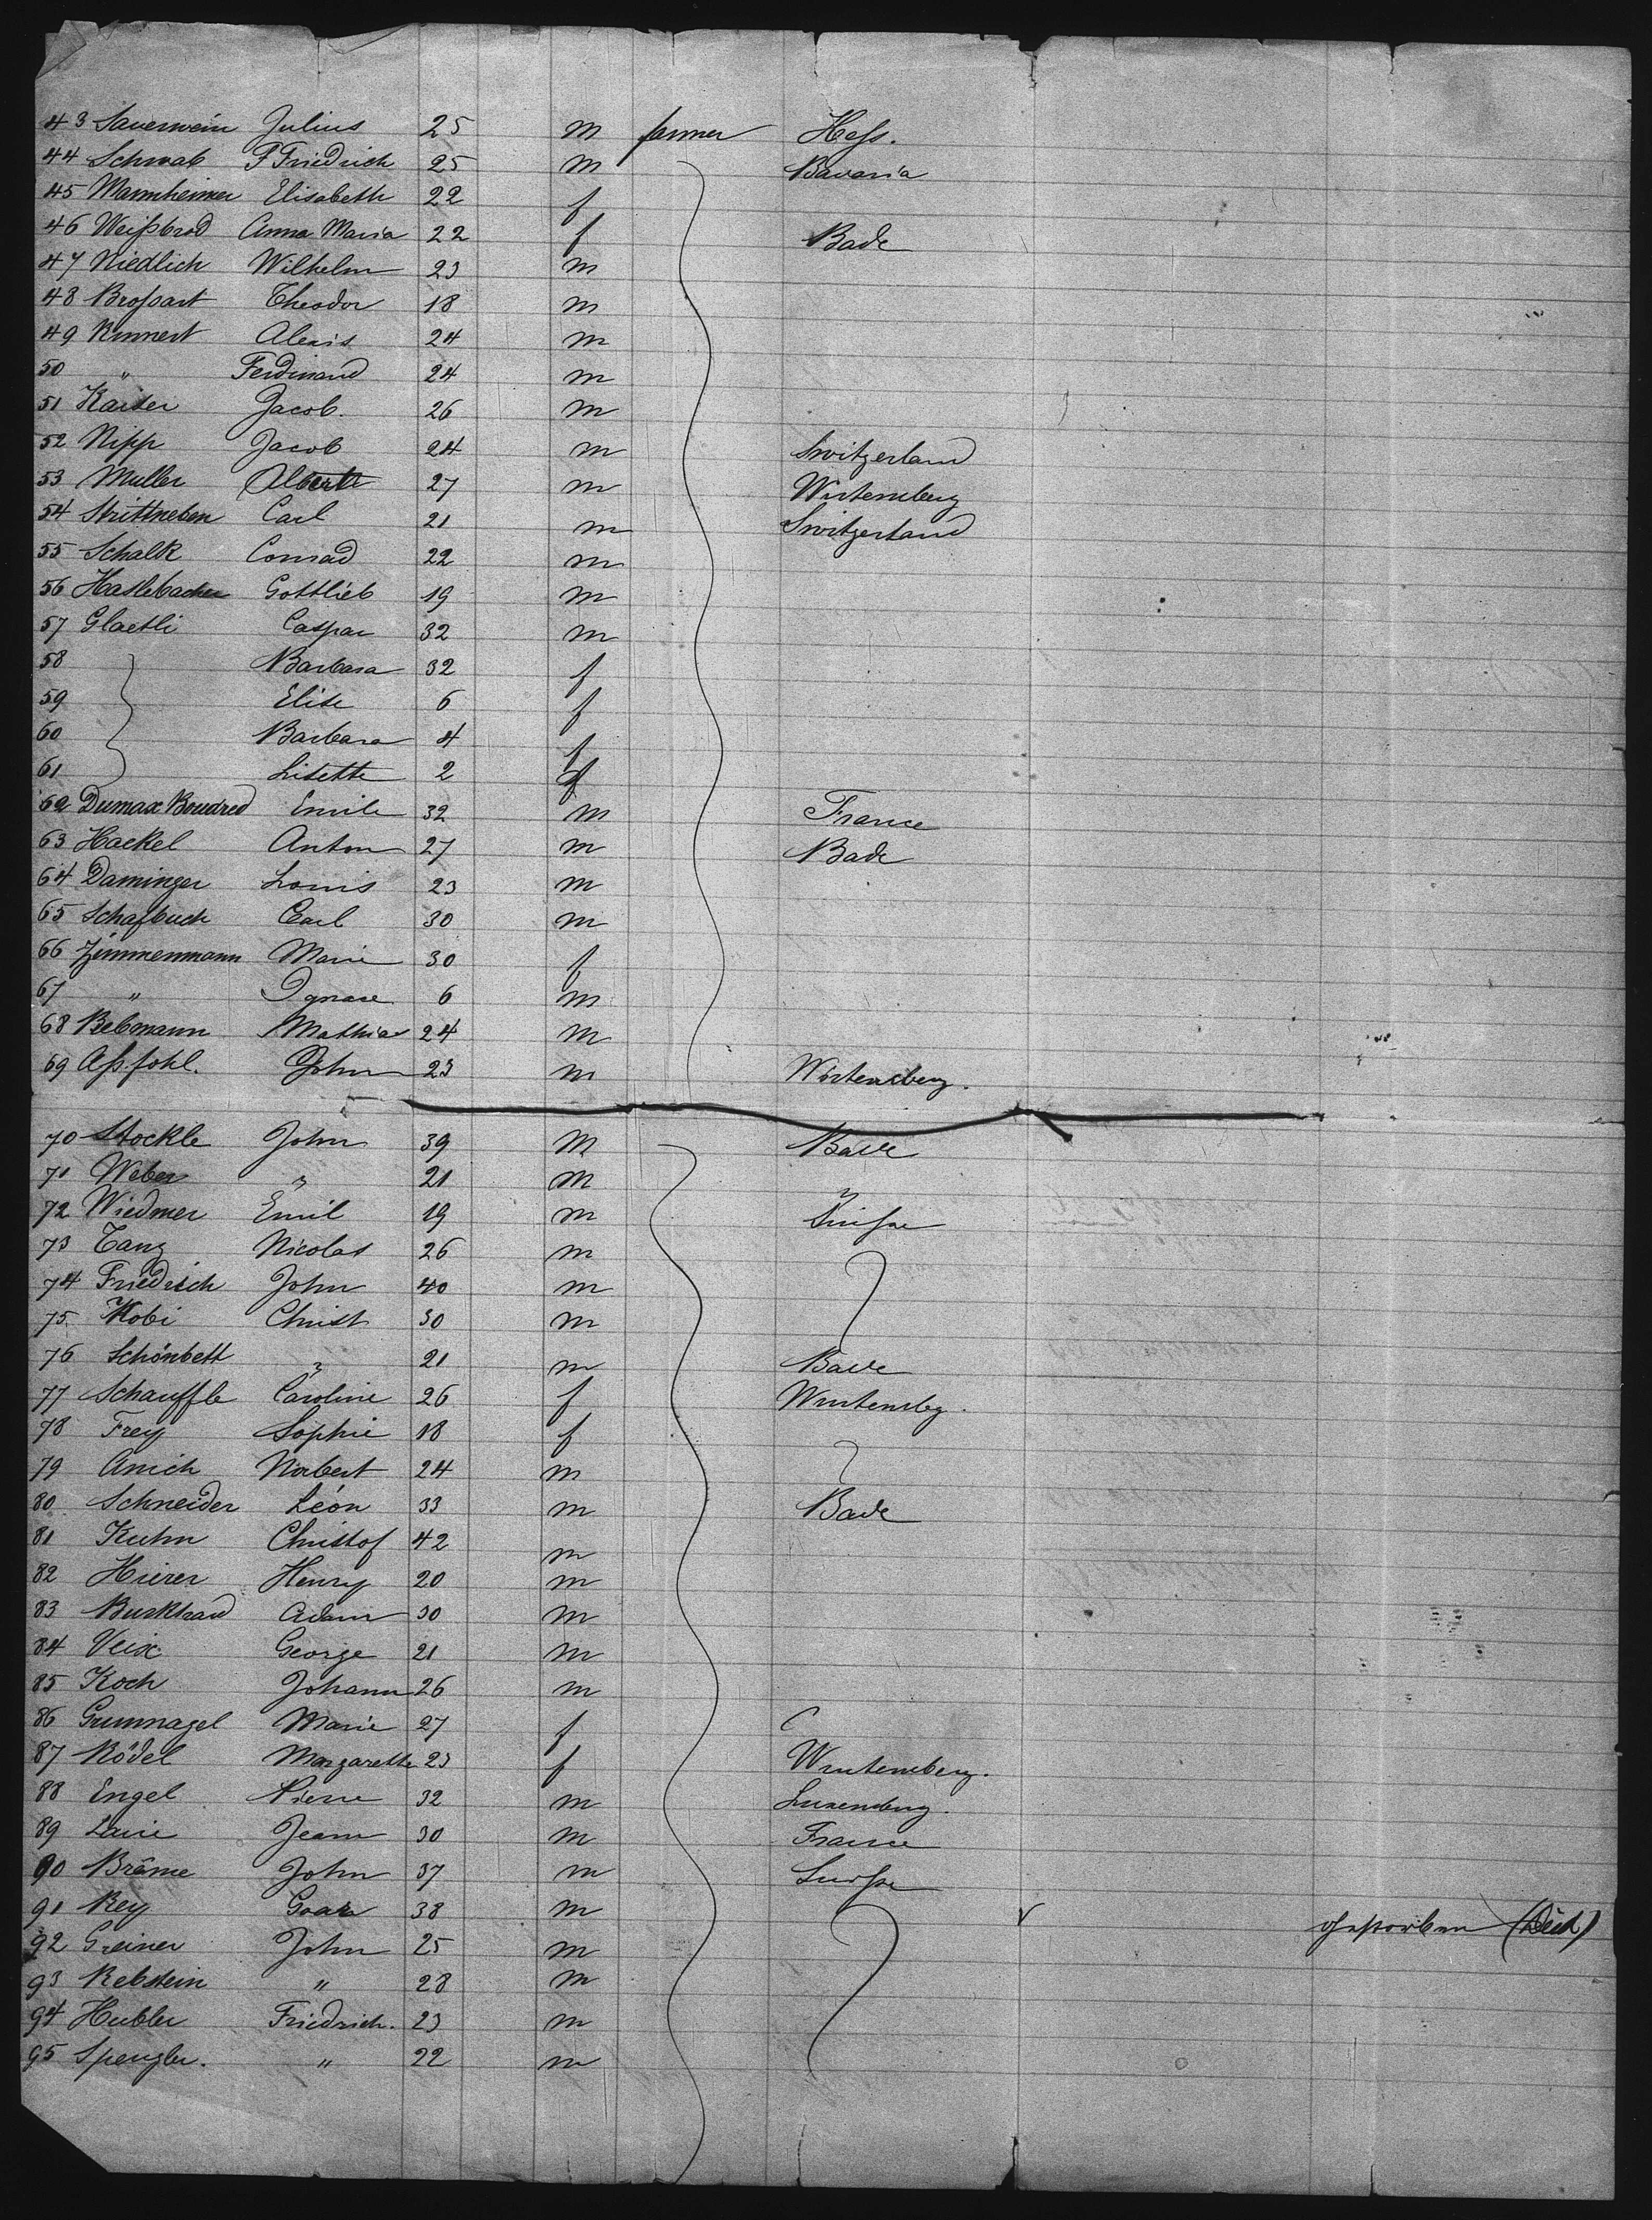 43 Sauerwein Julius 25 m farmer Hess.
44 Schwab F Friedrich 25 m Bavaria
45 Mannheimer Elisabeth 22 f
46 Weißbrod Anna Maria 22 f Bade
47 Niedlich Wilhelm 23 m
48 Broßart Theodor 18 m
49 Rinnert Alexis 24 m
50 " Ferdinand 24 m
51 Kaiser Jacob. 26 m
52 Nipp Jacob 24 m Switzerland
53 Muller Albert 27 m Wurtemberg
54 Strittneben Carl 21 m Switzerland
55 Schalk Conrad 22 m
56 Haslebacher Gottlieb 19 m
57 Glaetli Caspar 32 m
58 Barbara 32 f
59 Elise 6 f
60 Barbara 4 f
61 Lisette 2 f
62 Dumax Boudred Emile 32 m France
63 Hackel Anton 27 m Bade
64 Daminger Louis 23 m
65 Schafbuch Carl 30 m
66 Zimmermann Marie 30 f
67 " Ignace 6 m
68 Rebmann Mathias 24 m
69 John 23 m Würtemberg.
70 Stockle John 39 m Bade
71 Weber " 21 m "
72 Wiedmer Emil 19 m Suisse
73 Tanz Nicolas 26 m
74 Friedrich John 40 m
75 Kobi Christ 30 m
76 Schönbett " 21 m Bade
77 Schauffle Caroline 26 f Wurtembg.
78 Frey Sophie 18 f
79 Anich Norbert 24 m
80 Schneider Léon 33 m Bade
81 Kuhn Christof 42 m
82 Hierer Henry 20 m
83 Burkhard Adam 30 m
84 Veix George 21 m
85 Koch Johann 26 m
86 Grunnagel Marie 27 f
87 Rödel Margarethe 23 f Wurtemberg.
88 Engel Pierre 32 m Luxemburg.
89 Jean 30 m France
90 Bräme John 37 m Suisse
91 Rey 38 m gestorben (Died)
92 Greiner John 25 m
93 Rebstein " 28 m
94 Hubler Friedrich. 23 m
95 Spengler. " 22 m